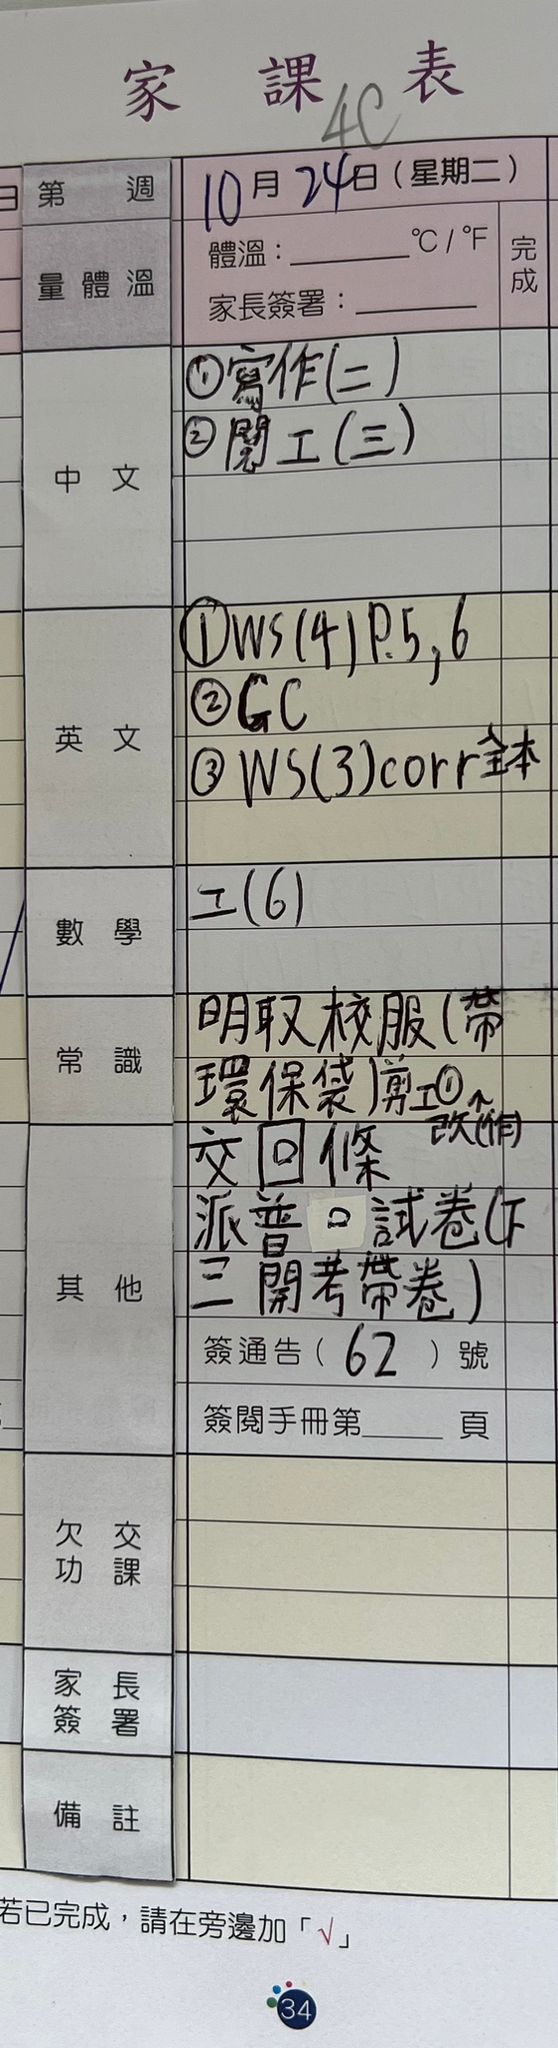 家 課 表
4C
日 第 週 10月24日(星期二)
量體溫 體溫：______ °C / °F 完成
家長簽署：______
中文 ①寫作(二)
②閱工(三)
英文 ①WS(4)P.5,6
②GC
③WS(3)corr全本
數學 工(6)
常識 明取校服(帶
環保袋)剪工①^
改(作)
其他 交回條
派普口試卷(下
三開考帶卷)
簽通告（62）號
簽閱手冊第____頁
欠交功課
家長簽署
備註
若已完成，請在旁邊加「√」
34